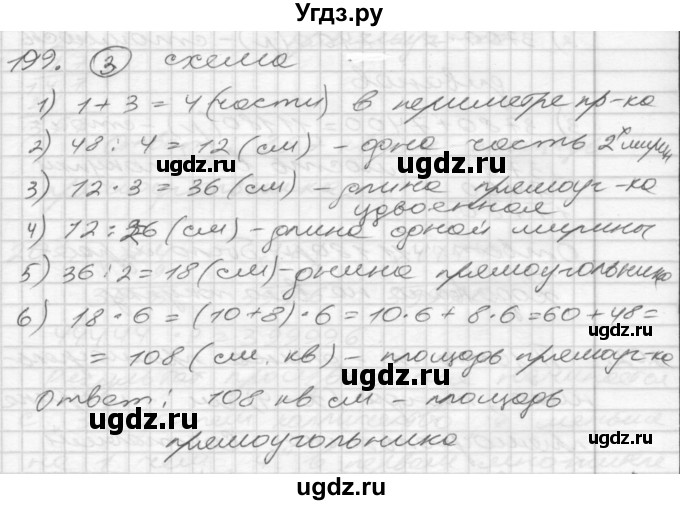 Угдз.ру
199. ③ схема
1) 1 + 3 = 4 (части) в периметре пр-ка
2) 48 : 4 = 12 (см) – одна часть 2х шири
ugdz.ru ugdz.ru
3) 12 · 3 = 36 (см) – длина прямоуг-ка
удвоенная
4) 12 : 2 = 6 (см) – длина одной ширины
5) 36 : 2 = 18 (см) – длина прямоугольника
ugdz.ru
6) 18 · 6 = (10 + 8) · 6 = 10 · 6 + 8 · 6 = 60 + 48 =
ugdz.ru
= 108 (см. кв) – площадь прямоуг-ка
ugdz.ru ugdz.ru
Ответ: 108 кв см – площадь
ugdz.ru
прямоугольника
ugdz.ru
ugdz.ru